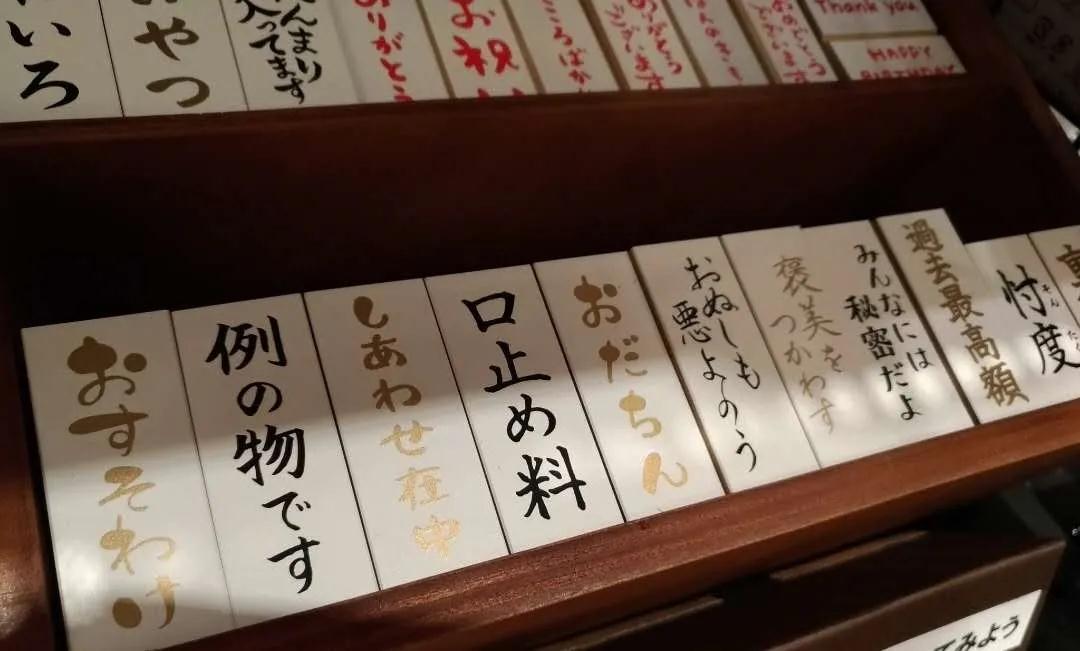 いろ
おやつ
んまり
入ってます
ありがとう
お祝
こころばか
ありがとう
ございます
ほんのきも
おめでとう
ございます
Thank you
HAPPY
BIRTHDAY
おすそわけ
例の物です
しあわせ在中
口止め料
おだちん
おぬしも
悪よのう
褒美を
つかわす
みんなには
秘密だよ
過去最高額
忖度
みよう